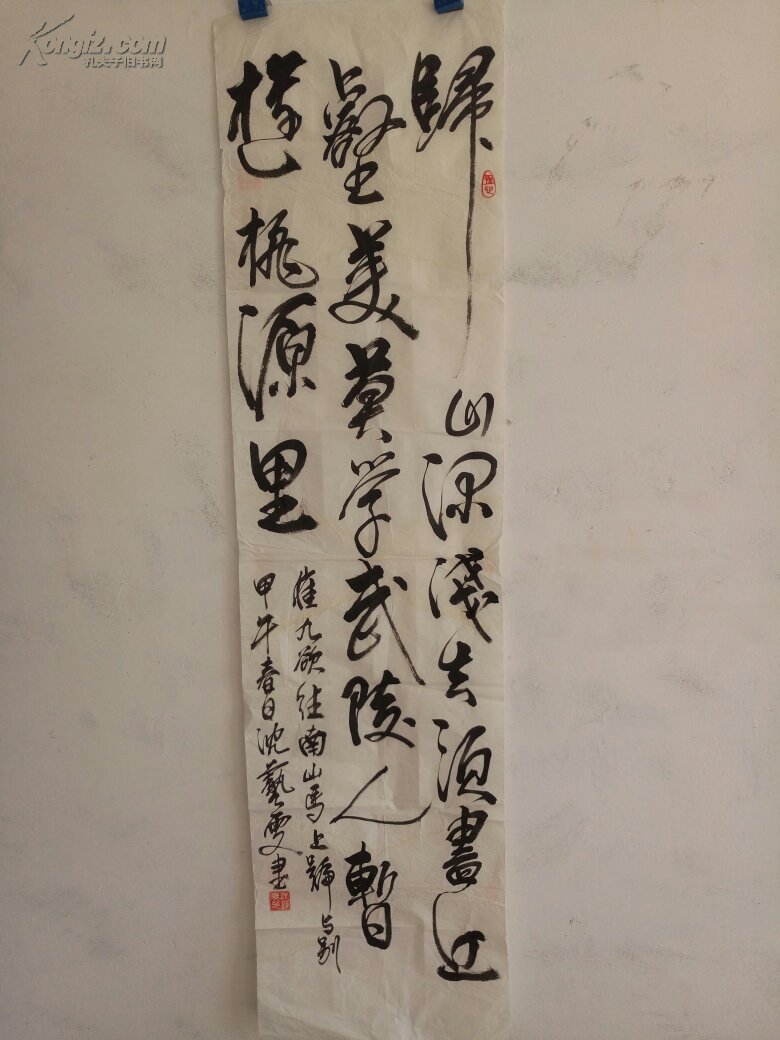 Kongfz.com
孔夫子旧书网
歸山深淺去須盡丘
壑美莫学武陵人暫
遊桃源里
崔九欲往南山馬上號与别
甲午春日沈藝雯書